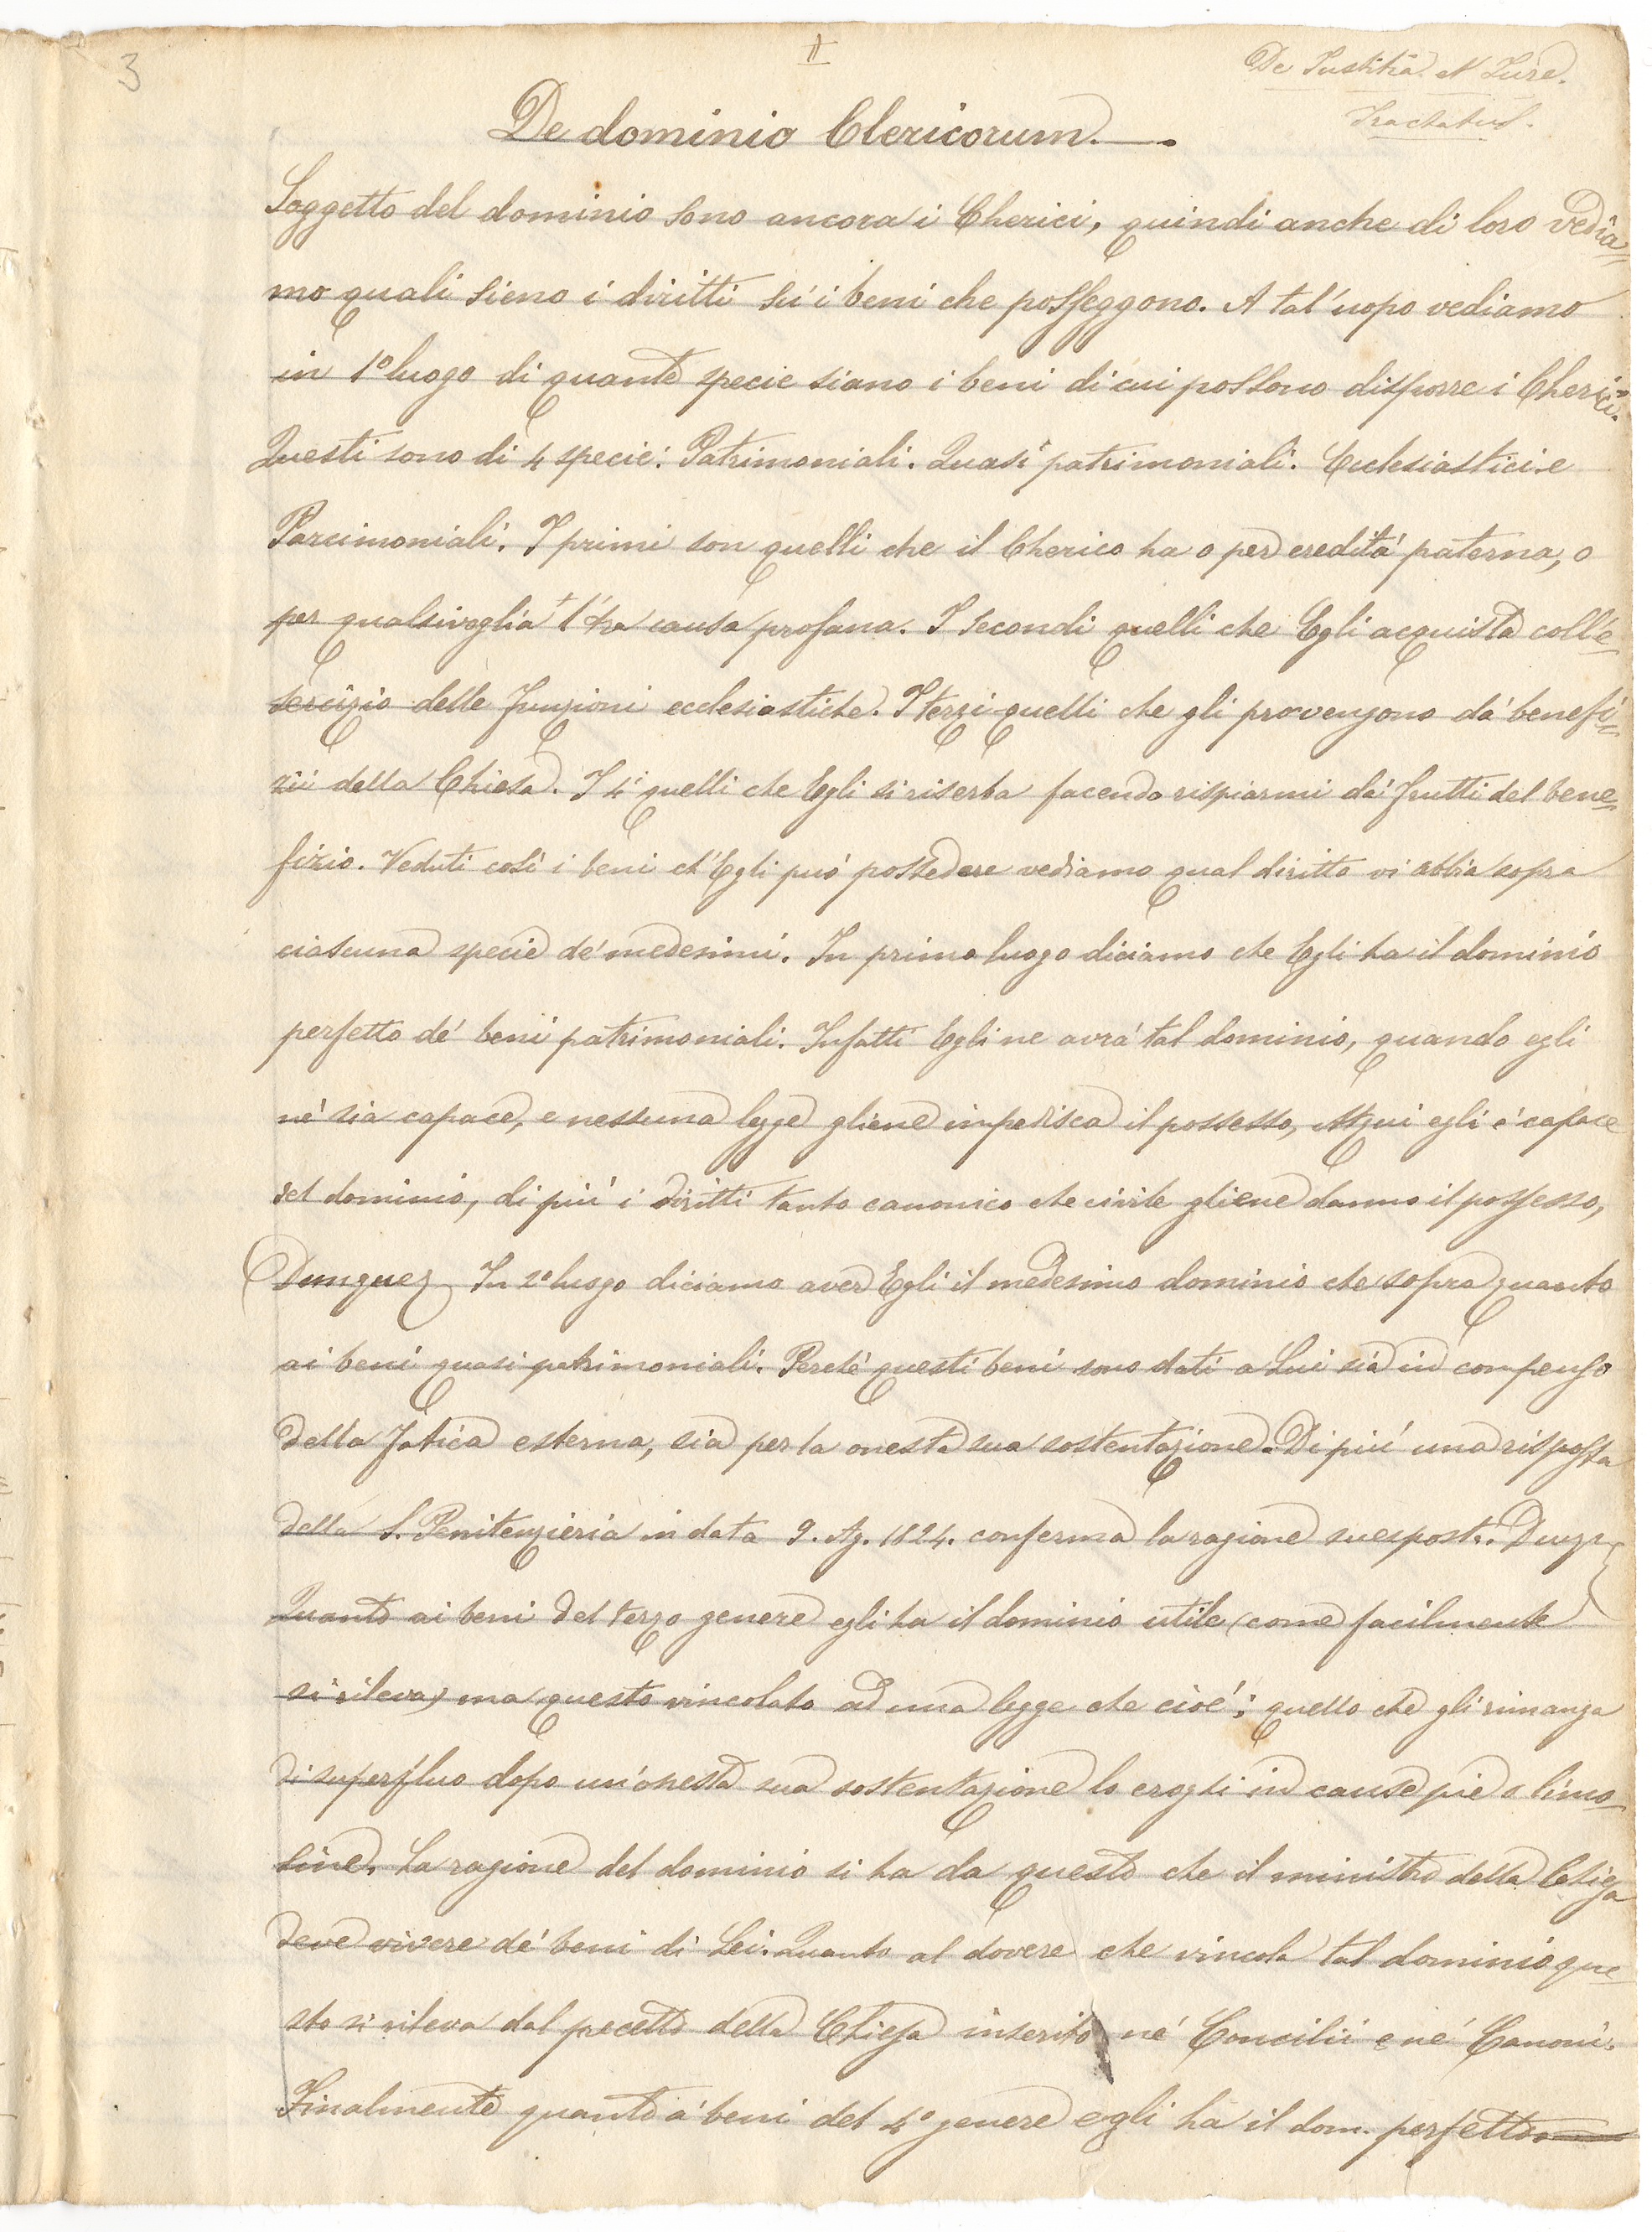 3
II
De Justitia et Jure.
Tractatus.
De dominio Clericorum.
Soggetto del dominio sono ancora i Cherici, quindi anche di loro vedia=
mo quali sieno i diritti su' i beni che posseggono. A tal'uopo vediamo
in 1º luogo di quante specie siano i beni di cui possono disporre i Cherici.
Questi sono di 4 specie: Patrimoniali. Quasi patrimoniali. Ecclesiastici e
Parcimoniali. I primi son quelli che il Cherico ha o per eredità paterna, o
per qualsivoglia + causa profana. I secondi quelli che Egli acquista coll'e=
sercizio delle funzioni ecclesiastiche. I terzi quelli che gli provengono da' benefi=
zii della Chiesa. I 4i quelli che Egli si riserba facendo risparmi da' frutti del bene=
fizio. Veduti così i beni ch'Egli può possedere vediamo qual diritto vi abbia sopra
ciascuna specie de' medesimi. In primo luogo diciamo che Egli ha il dominio
perfetto de' beni patrimoniali. Infatti Egli ne avrà tal dominio, quando egli
ne' sia capace, e nessuna legge gliene impedisca il possesso, Atqui egli è capace
del dominio, di più i diritti tanto canonico che civile gliene danno il possesso,
Dunque. In 2º luogo diciamo aver Egli il medesimo dominio che sopra quanto
ai beni quasi patrimoniali. Perchè questi beni sono dati a Lui sia in compenso
della fatica esterna, sia per la onesta sua sostentazione. Di più una risposta
della S. Penitenzieria in data 9. Ag. 1824. conferma la ragione suesposta. Dunq.
Quanto ai beni del terzo genere egli ha il dominio utile (come facilmente
si rileva) ma questo vincolato ad una legge che cioè: quello che gli rimanga
di superfluo dopo un'onesta sua sostentazione lo eroghi in cause pie o limo=
sine. La ragione del dominio si ha da questo che il ministro della Chiesa
deve vivere de' beni di Lei. Quanto al dovere che vincola tal dominio que
sto si rileva dal precetto della Chiesa inserito ne' Concilii e ne' Canoni.
Finalmente quanto a' beni del 4º genere egli ha il dom. perfetto.